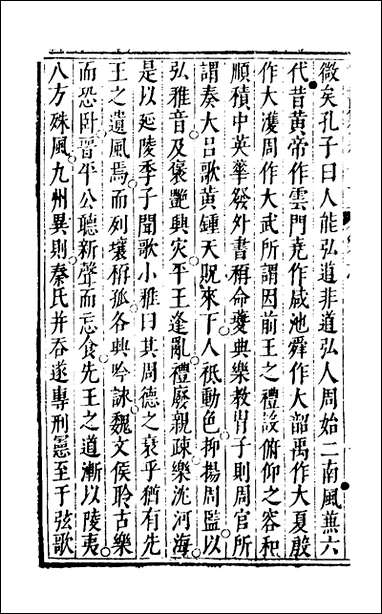 微矣孔子曰人能弘道非道弘人周始二南風蕪六
代昔黃帝作雲門堯作咸池舜作大韶禹作大夏殷
作大濩周作大武所謂因前王之禮設俯仰之容和
順積中英華發外書稱命夔典樂教胄子則周官所
謂奏大呂歌黃鍾天貺來下人祇動色抑揚周監以
弘雅音及褒艷興灾平王逢亂禮廢親疎樂沈河海
是以延陵季子聞歌小雅曰其周德之衰乎猶有先
王之遺風焉而列壤稱孤各興吟詠魏文侯聆古樂
而恐卧晉平公聽新聲而忘食先王之道漸以陵夷
八方殊風九州異則秦氏并吞遂專刑憲至于弦歌